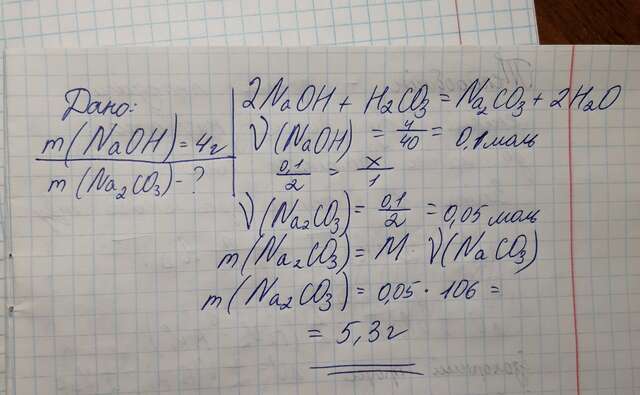 Дано:
m(NaOH)=4г
m(Na₂CO₃)-?
2NaOH + H₂CO₃ = Na₂CO₃ + 2H₂O
ν(NaOH) = 4/40 = 0,1 моль
0,1/2 = x/1
ν(Na₂CO₃) = 0,1/2 = 0,05 моль
m(Na₂CO₃) = M · ν(NaCO₃)
m(Na₂CO₃) = 0,05 · 106 =
= 5,3г